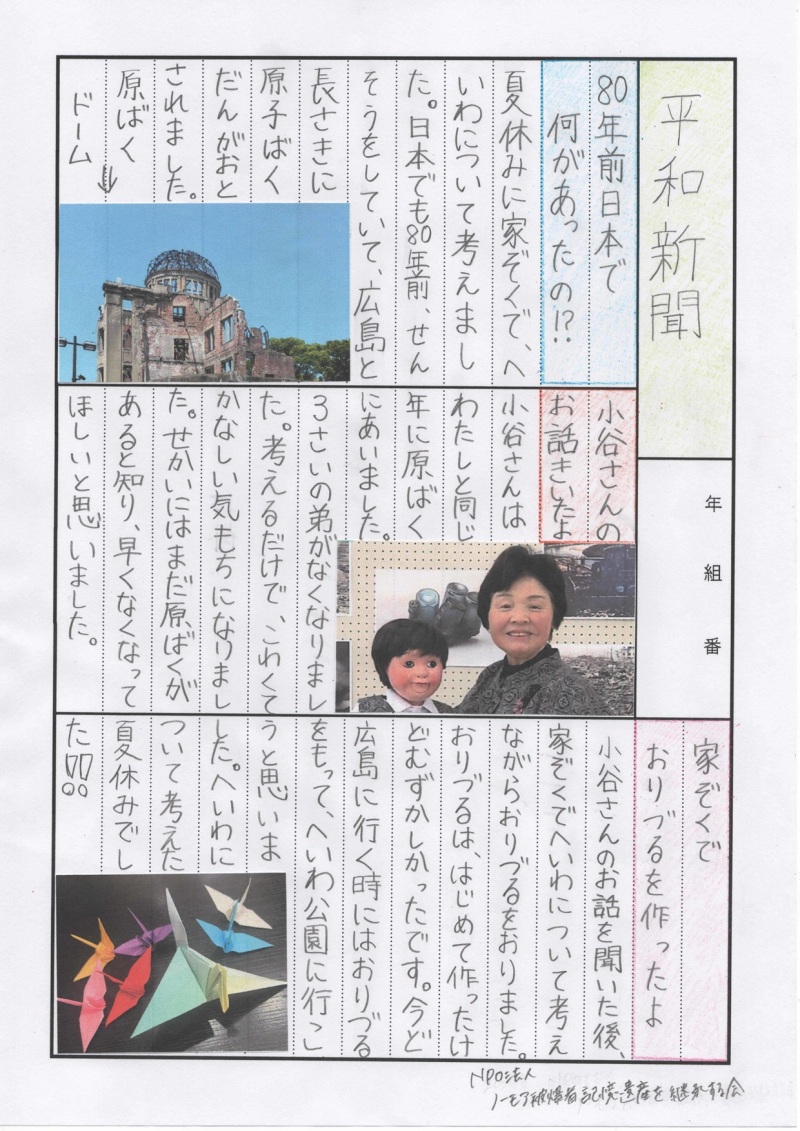 平和新聞
年 組 番
80年前日本で
何があったの!?
夏休みに家ぞくで、へ
いわについて考えまし
た。日本でも80年前、せん
そうをしていて、広島と
長さきに
原子ばく
だんがおと
されました。
原ばく
ドーム
小谷さんの
お話きいたよ
小谷さんは
わたしと同じ
年に原ばく
にあいました。
3さいの弟がなくなりまし
た。考えるだけで、こわくて
かなしい気もちになりまし
た。せかいにはまだ原ばくが
あると知り、早くなくなって
ほしいと思いました。
家ぞくで
おりづるを作ったよ
小谷さんのお話を聞いた後、
家ぞくでへいわについて考え
ながらおりづるをおりました。
おりづるは、はじめて作ったけ
どむずかしかったです。今ど
広島に行く時にはおりづる
をもって、へいわ公園に行こ
うと思いま
した。へいわに
ついて考えた
夏休みでし
た!!
NPO法人
ノーモア被爆者記憶遺産を継承する会